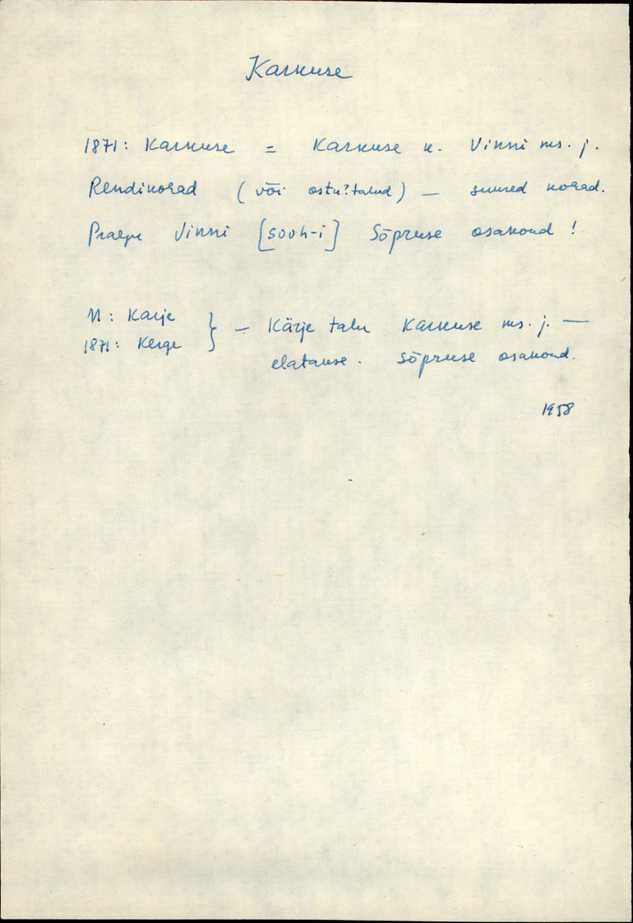 Karkuse
1871: Karkuse = Karkuse k. Vinni ms. j.
Rendikohad (või ostu?talud) — suured kohad.
Praegu Vinni [sovh-i] Sõpruse osakond!
M: Karje
1871: Kerge } – Kärje talu Karkuse ms. j. —
elatakse. Sõpruse osakond.
1958